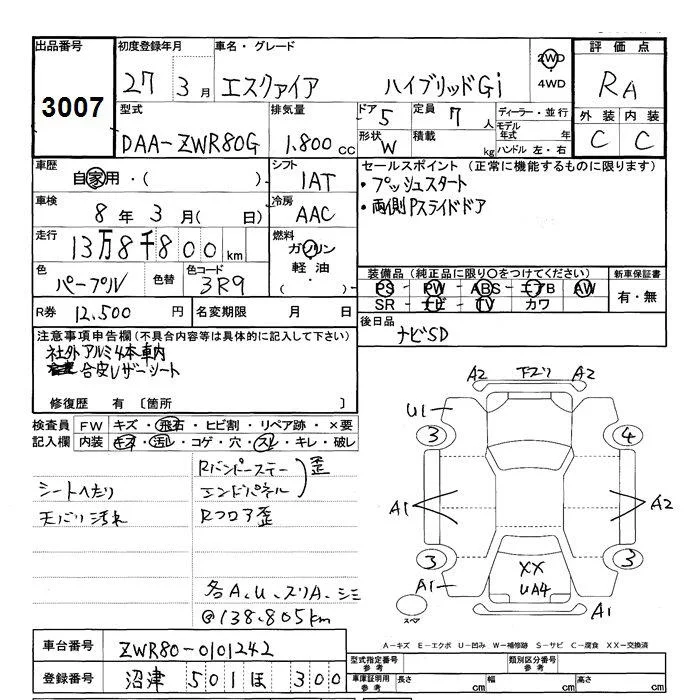 出品番号 初度登録年月 車名・グレード 評価点
3007 27 3月 エスクァイア ハイブリッドGi 2WD ・ 4WD RA
型式 排気量 ドア 5 定員 7人 ディーラー・並行 外装 内装
DAA-ZWR80G 1.800cc 形状 W 積載 kg モデル年式 年 ハンドル 左・右 C C
車歴 自家用・( ) シフト 1AT セールスポイント (正常に機能するものに限ります)
・プッシュスタート
車検 8年 3月( 日) 冷房 AAC ・両側Pスライドドア
走行 13万8千800km 燃料 ガソリン・軽油・( )
色 パープル 色替 色コード 3R9 装備品(純正品に限り○をつけてください) 新車保証書
PS - PW - ABS - エアB - AW 有・無
SR - ナビ - TV カワ
R券 12,500円 名変期限 月 日 後日品
ナビSD
注意事項申告欄(不具合内容等は具体的に記入して下さい)
社外アルミ4本車内
合皮レザーシート
修復歴 有 〔箇所 〕
検査員 FW キズ・飛石・ヒビ割・リペア跡・×要
記入欄 内装 キズ・汚レ・コゲ・穴・スレ・キレ・破レ
Rバンパーステー 歪
シートへたり エンドパネル
天バリ汚れ Rフロア歪
各A、U、スリA、シミ
@138.805km
A2 下スリ A2
U1
3 4
A1 A2
3 3
XX
UA4
A1 A1
スペア
A-キズ E-エクボ U-凹み W-補修跡 S-サビ C-腐食 XX-交換済
車台番号 ZWR80-0101242 型式指定番号 参考 類別区分番号 参考
登録番号 沼津 501 ほ 300 車庫証明用 参考 長さ cm 幅 cm 高さ cm